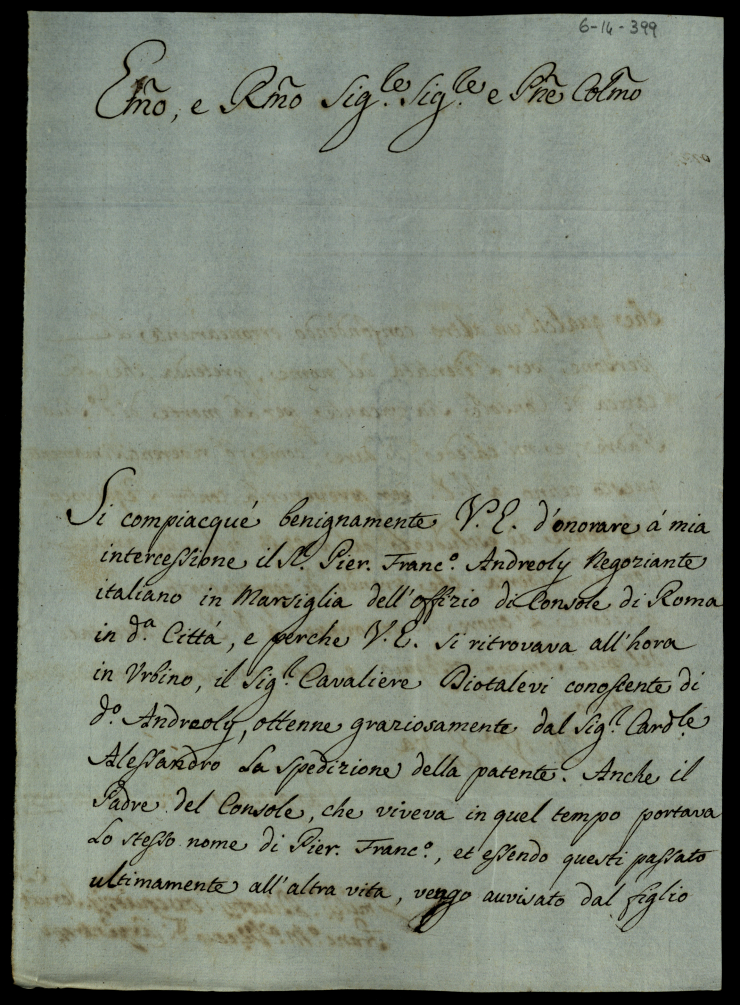 6-14-399
Em̃o, e Rm̃o Sig.le Sig.le e Pñe Colm̃o
Si compiacqué benignamente V.E. d'onorare á mia
intercessione il S.r Pier. Franc.o Andreoly Negoziante
italiano in Marsiglia dell'offizio di Console di Roma
in d.a Cittá, e perche V.E. si ritrovava all'hora
in Urbino, il Sig.r Cavaliere Diotalevi conoscente di
d.o Andreoly, ottenne graziosamente dal Sig.r Card.le
Alessandro la spedizione della patente. Anche il
Padre del Console, che viveva in quel tempo portava
Lo stesso nome di Pier. Franc.o, et essendo questi passato
ultimamente all'altra vita, vengo auvisato dal figlio